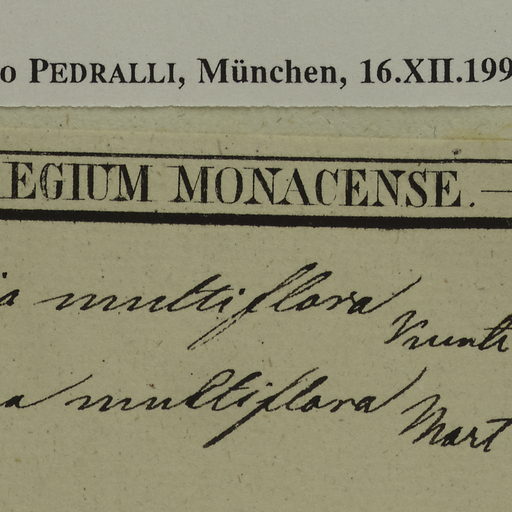 o PEDRALLI, München, 16.XII.199
EGIUM MONACENSE.
a multiflora
a multiflora Mart